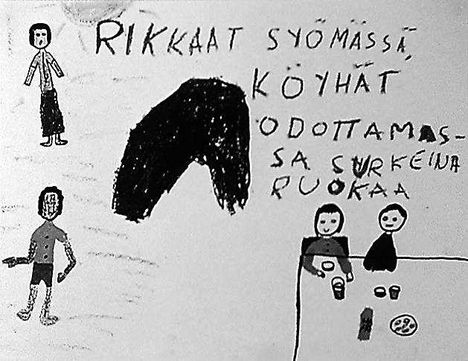 RIKKAAT SYÖMÄSSÄ,
KÖYHÄT
ODOTTAMAS-
SA SURKEINA
RUOKAA